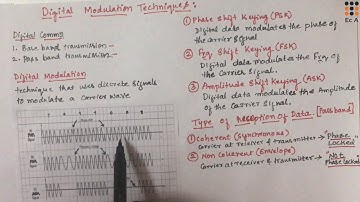 Digital Modulation Techniques:
Digital Comms
1. Base band transmission-
2. Pass band transmission-
Digital Modulation
technique that uses discrete signals
to modulate a carrier wave
① Phase Shift Keying (PSK)
Digital data modulates the phase of
the carrier signal
② Frq Shift Keying (FSK)
Digital data modulates the Frq of
the Carrier Signal.
③ Amplitude Shift Keying (ASK)
Digital data modulates the Amplitude
of the Carrier Signal.
Type of Reception of Data. [Pass band]
① Coherent (Synchronous)
Carrier at receiver & transmitter → "Phase
Locked"
② Non Coherent (Envelope)
Carrier at receiver & transmitter → "Not
Phase Locked"